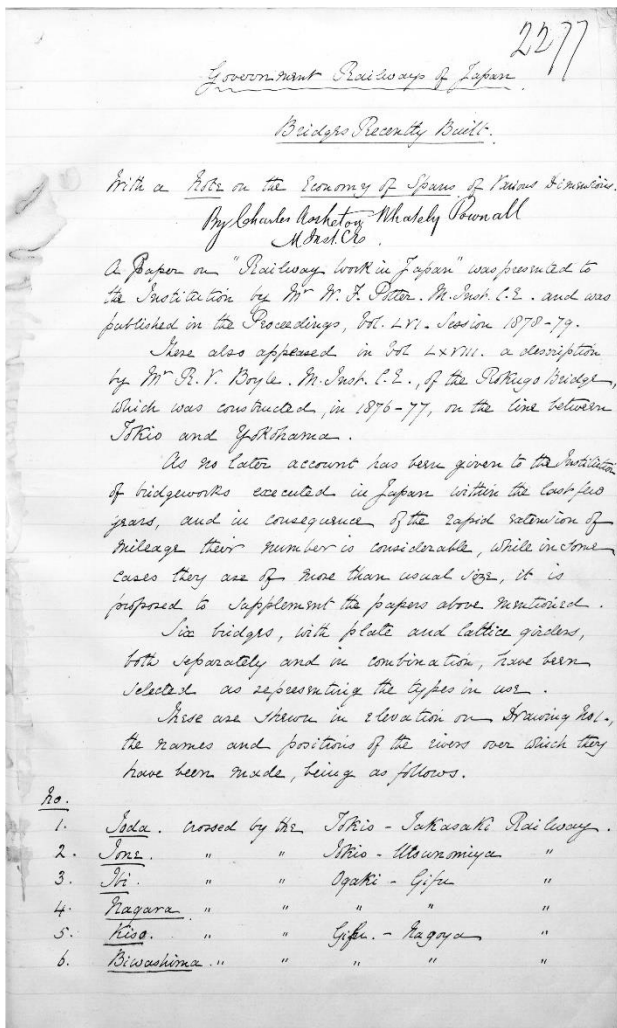 2277
Government Railways of Japan
Bridges Recently Built.
With a Note on the Economy of Spans of Various Dimensions.
By Charles Assheton Whately Pownall
M Inst. CE.
A Paper on "Railway Work in Japan" was presented to
the Institution by Mr W. F. Potter. M. Inst. C.E. and was
published in the Proceedings, Vol. LVI. Session 1878-79.
There also appeared in Vol LXVIII. a description
by Mr R. V. Boyle. M. Inst. C.E., of the Rokugo Bridge,
which was constructed, in 1876-77, on the line between
Tokio and Yokohama.
As no later account has been given to the Institution
of bridgeworks executed in Japan within the last few
years, and in consequence of the rapid extension of
mileage their number is considerable, while in some
cases they are of more than usual size, it is
proposed to supplement the papers above mentioned.
Six bridges, with plate and lattice girders,
both separately and in combination, have been
selected as representing the types in use.
These are shewn in elevation on Drawing No1.,
the names and positions of the rivers over which they
have been made, being as follows.
No.
1. Toda. crossed by the Tokio - Takasaki Railway.
2. Tone. " " Tokio - Utsunomiya "
3. Ibi. " " Ogaki - Gifu "
4. Nagara " " " " "
5. Kiso. " " Gifu. - Nagoya "
6. Biwashima. " " " " "